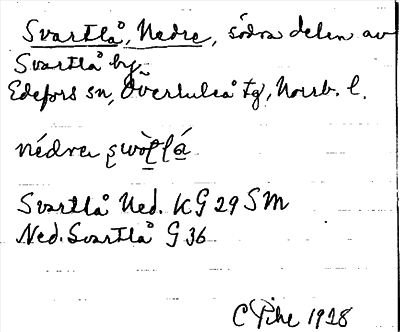 Svartlå, Nedre, södra delen av
Svartlå by,
Edefors sn, Överluleå tg, Norrb. l.
nédrer
Svartlå Ned. KG 29 SM
Ned. Svartlå G 36
C Pihl 1928